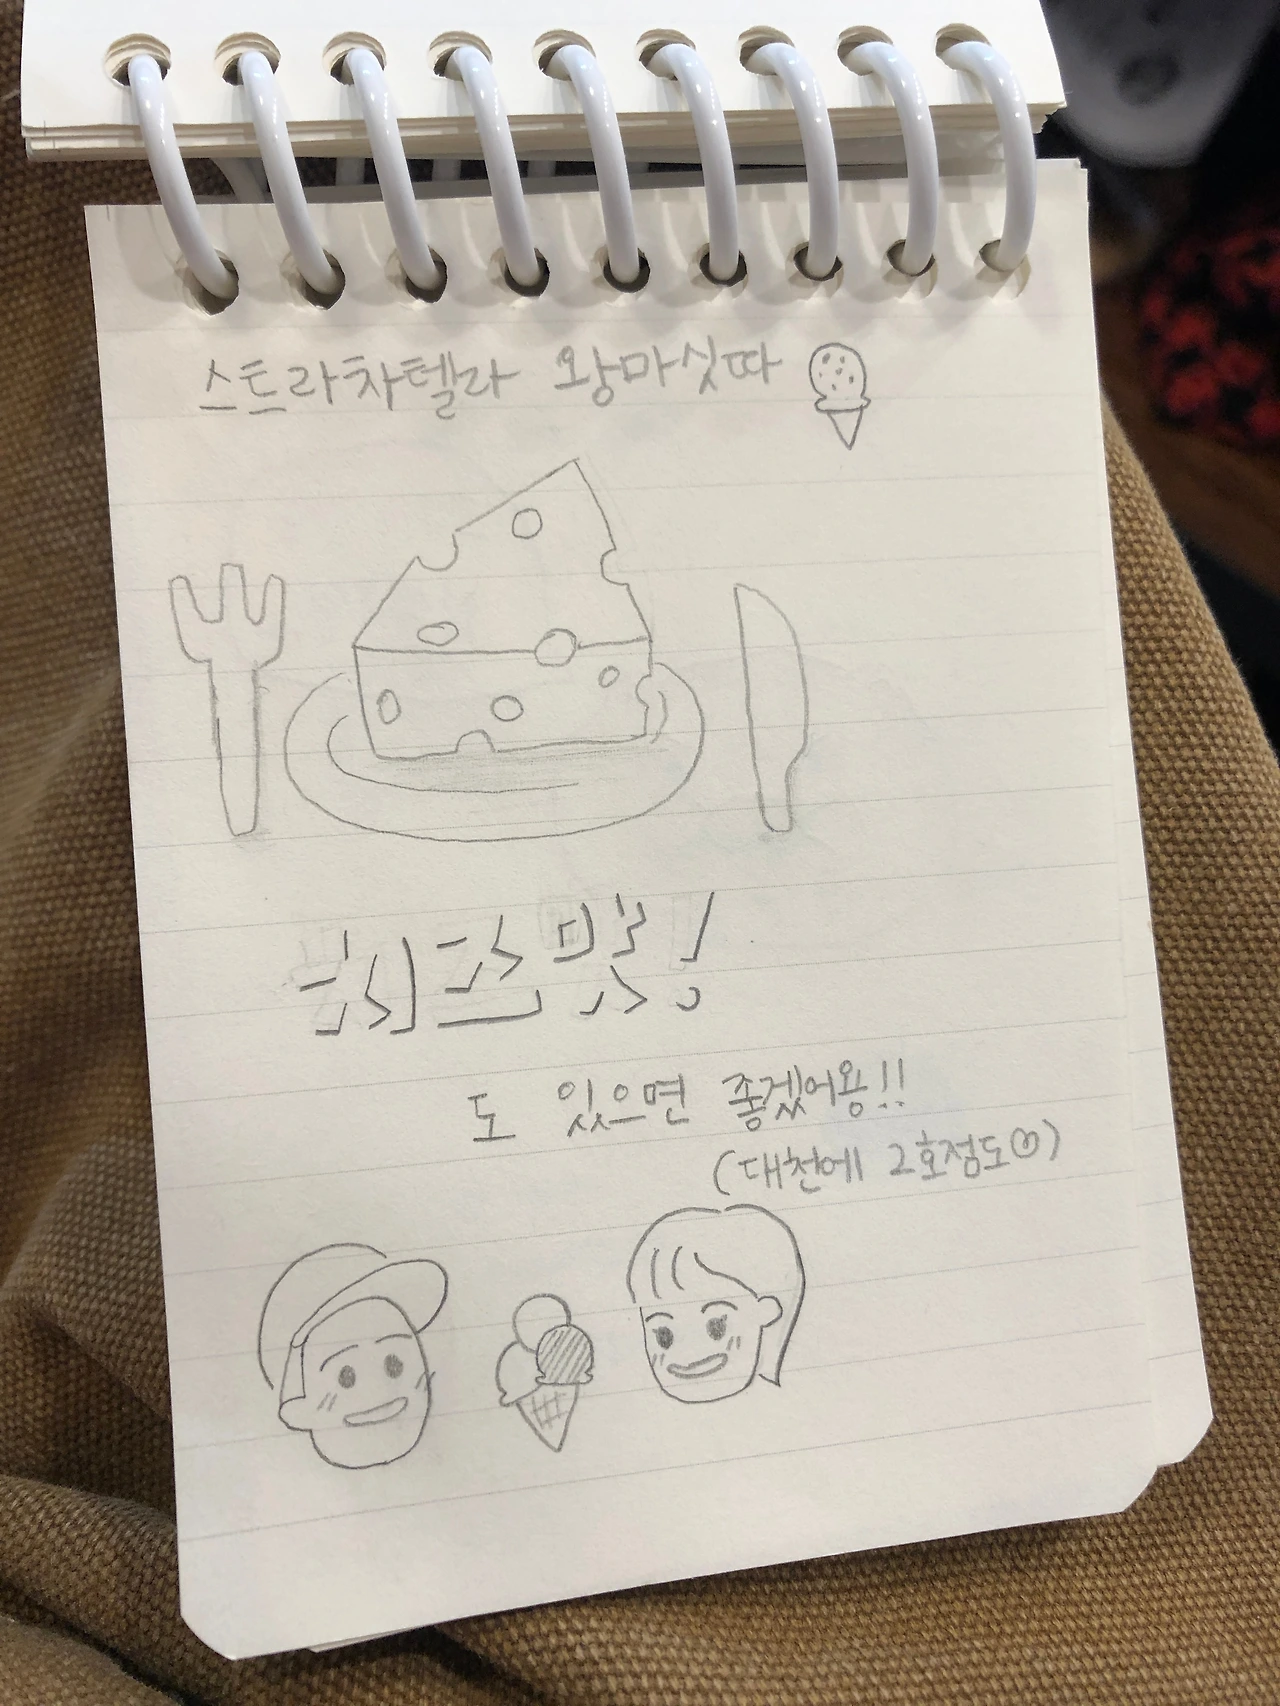 스트라차텔라 왕마싯따
치즈맛!
도 있으면 좋겠어용!!
(대천에 2호점도)